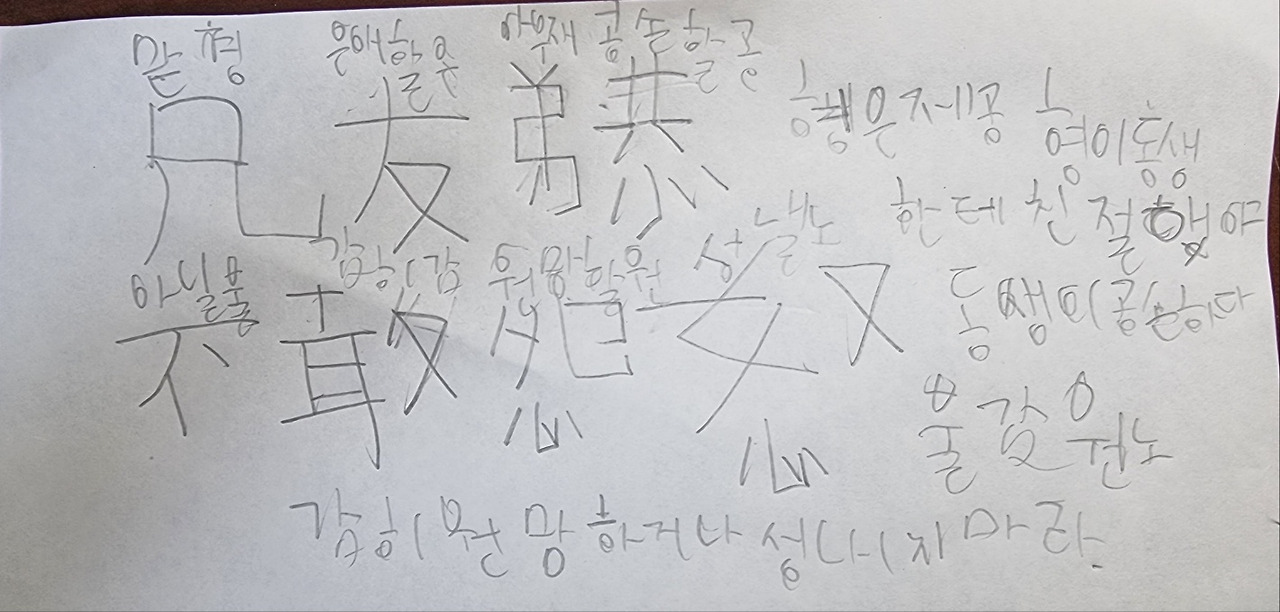 맏 형 은애할 우 아우제 공손할 공
兄 友 弟 恭
형은제공 형이동생
한테 친절해야
동생이공손하다
아니불 감히 감 원망할원 성낼노
不 敢 怨 怒
불감원노
감히 원망하거나 성내지마라.